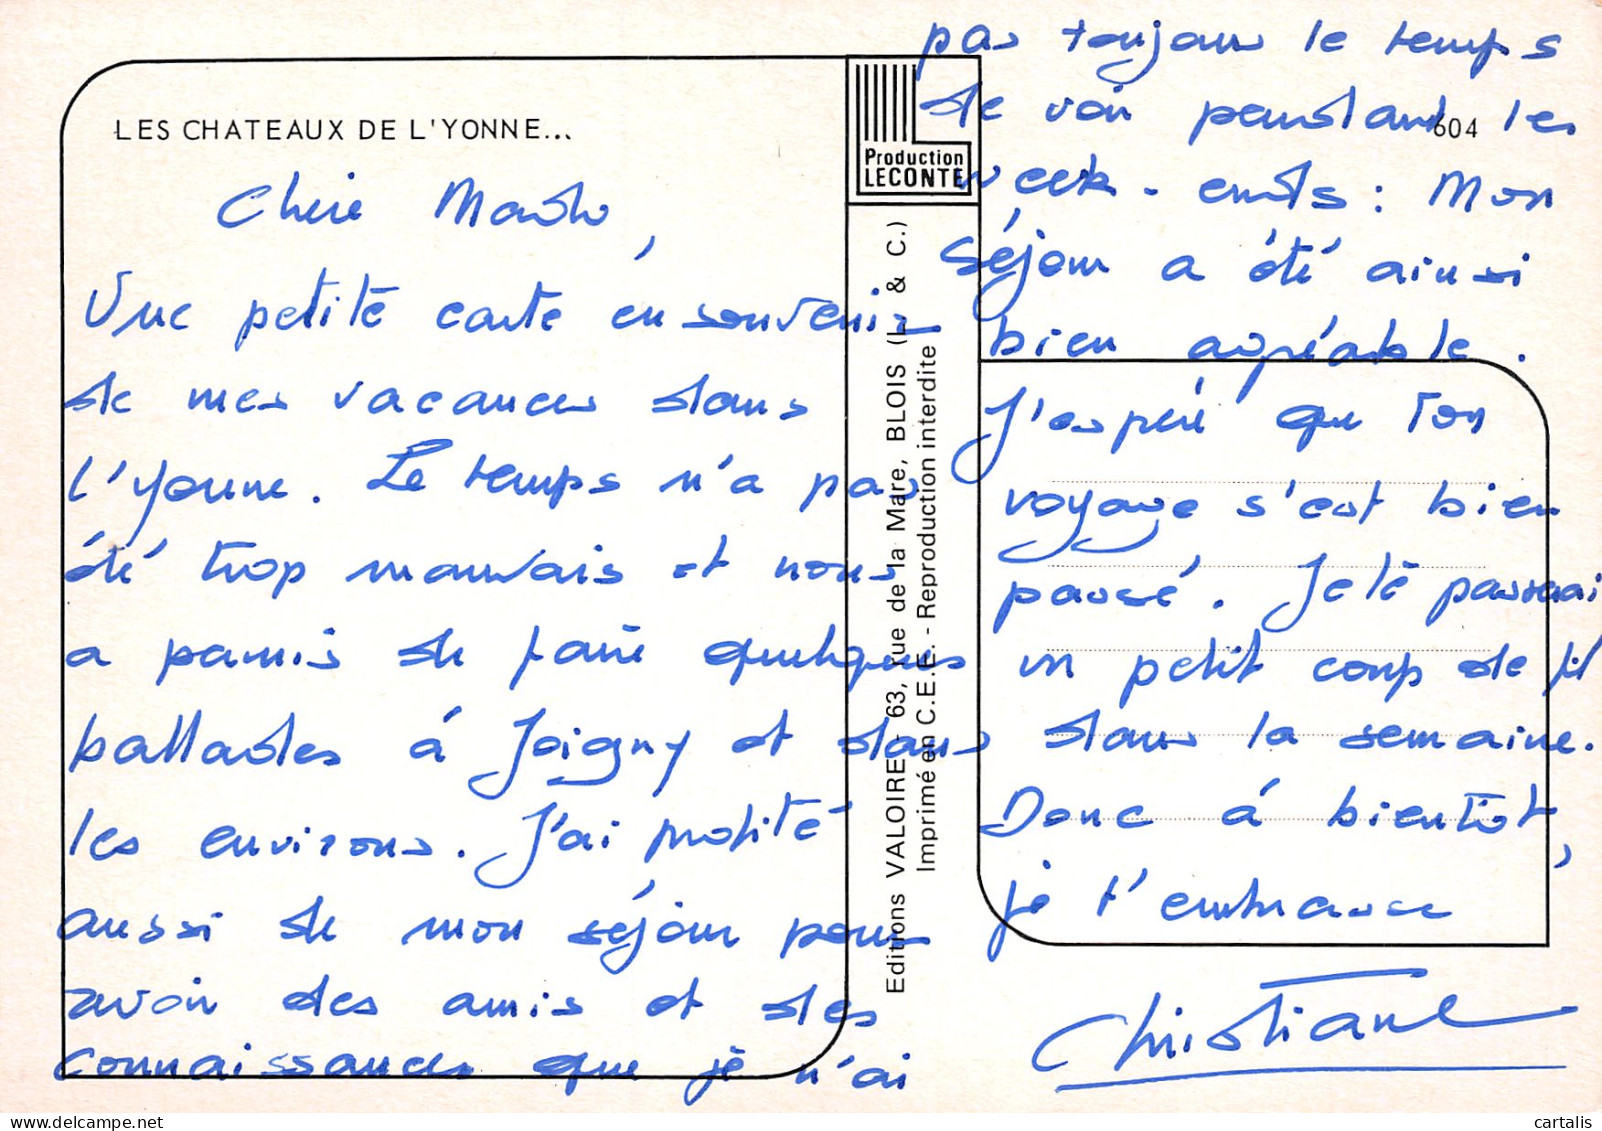 LES CHATEAUX DE L'YONNE...
Chère
Une petite carte en souvenir
de mes vacances dans
l'Yonne. Le temps n'a pas
été trop mauvais et nous
a permis de faire quelques
ballades à Joigny et dans
les environs. J'ai profité
aussi de mon séjour pour
avoir des amis et des
connaissances que je n'ai
Production
LECONTE
Editions VALOIRE - 63, rue de la Mare, BLOIS (L. & C.)
Imprimé en C.E.E. - Reproduction interdite
604
pas toujours le temps
de voir pendant les
week-ends : Mon
séjour a été aussi
bien agréable.
J'espère que ton
voyage s'est bien
passé. Je te passerai
un petit coup de fil
dans la semaine.
Donc à bientôt,
je t'embrasse
Christiane
cartalis